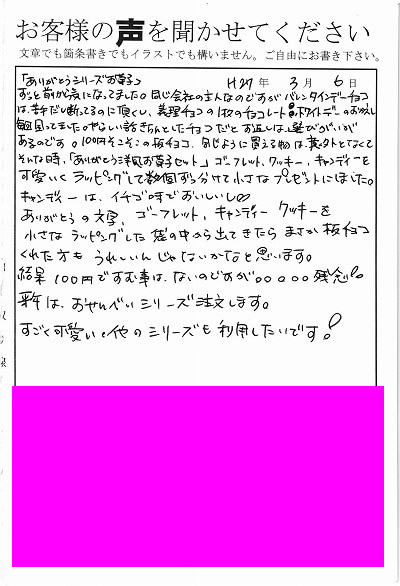 お客様の声を聞かせてください
文章でも箇条書きでもイラストでも構いません。ご自由にお書き下さい。
「ありがとうシリーズお菓子」 H27年 3月 6日
ずっと前から気になってました。同じ会社の主人なのですがバレンタインデーチョコ
は、苦手だし断ってるのに頂くし、義理チョコの1枚のチョコレート ホワイトデーのお返し
毎回困ってました。やらしい話きちんとしたチョコだとお返しは、選びがいが
あるのです。100円そこそこの板チョコ、同じように買える物は、意外となくて
そんな時、「ありがとう洋風お菓子セット」ゴーフレット、クッキー、キャンディーを
可愛いくラッピングして数個ずつ分けて小さなプレゼントにしました。
キャンディーは、イチゴ味でおいしいし♡
ありがとうの文字、ゴーフレット、キャンディー クッキーを
小さなラッピングした袋の中から出てきたら まさか板チョコ
くれた方も うれしいんじゃないかなと思います。
結果 100円ですむ事は、ないのですが。。。。。残念!
来年は、おせんべいシリーズ注文します。
すごく可愛い。他のシリーズも利用したいです!